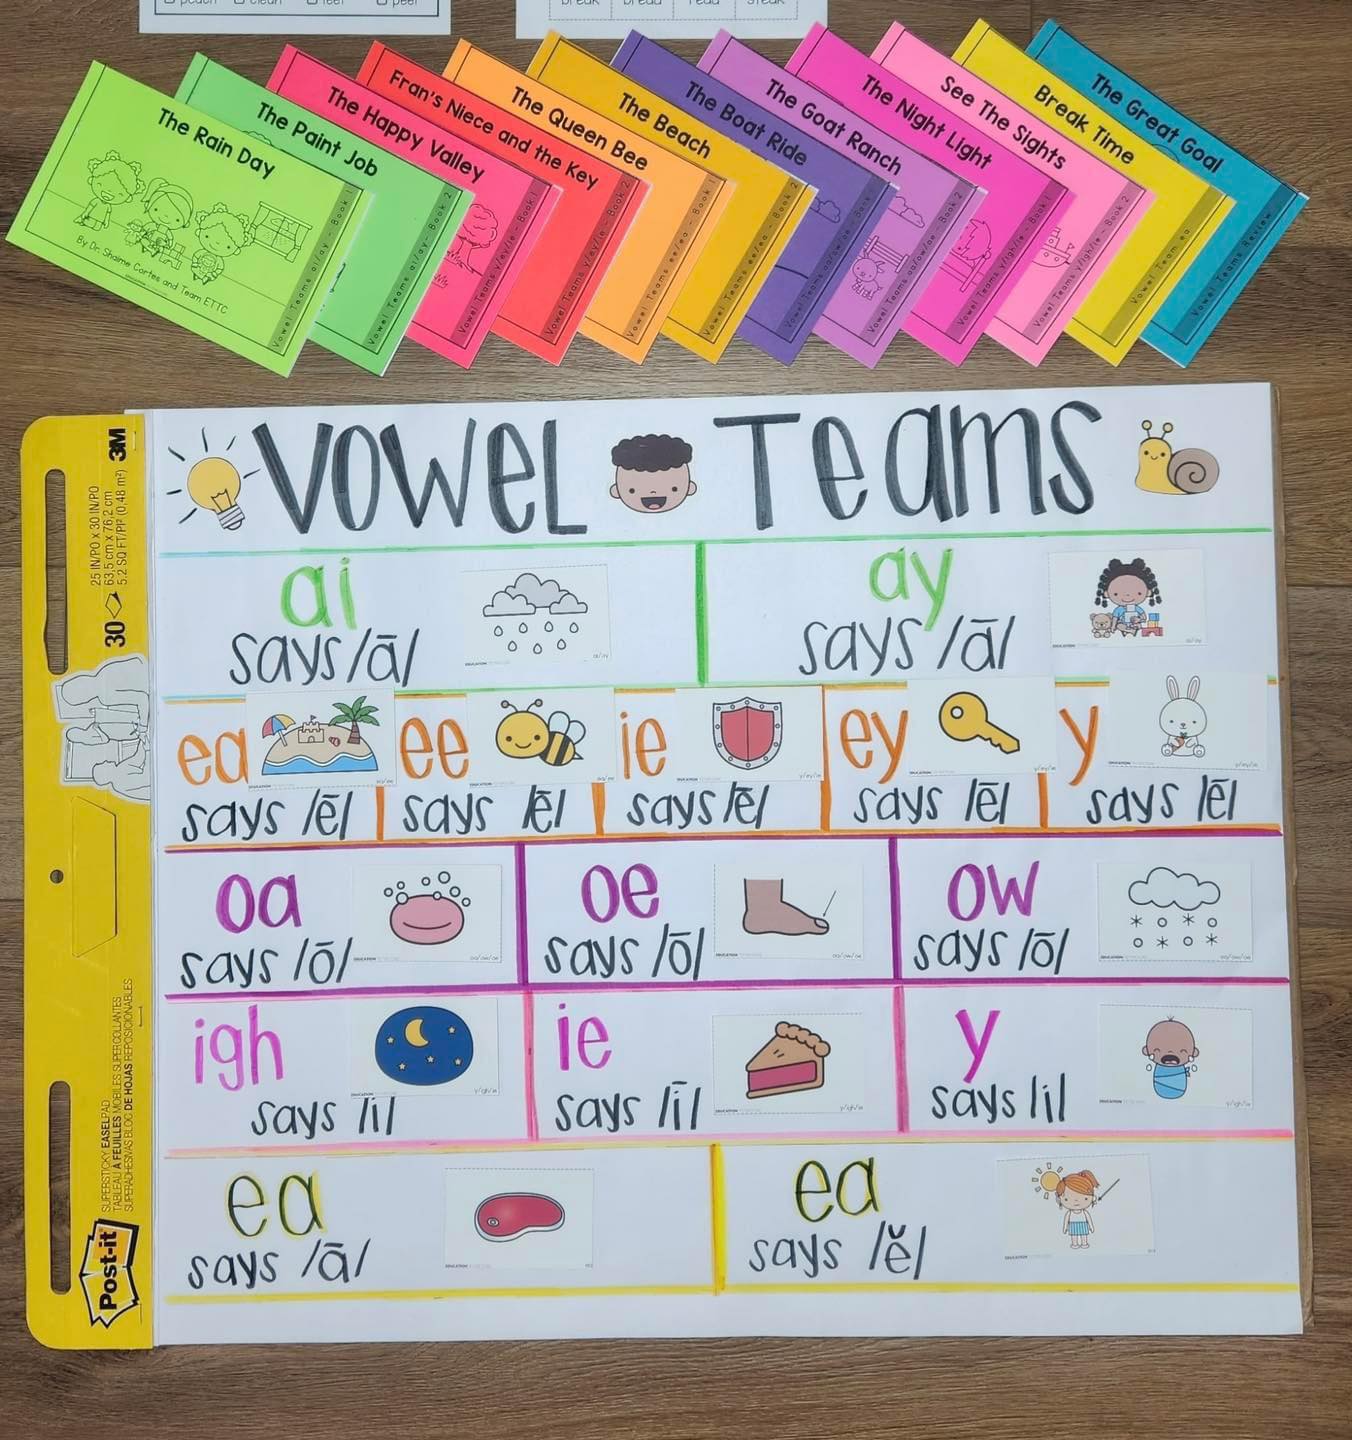 peach
clean
feel
peel
break
bread
read
steak
The Rain Day
By Dr. Shalme Cortes and Team ETTC
Vowel Teams ai/ay - Book 1
The Paint Job
Vowel Teams ai/ay - Book 2
The Happy Valley
Vowel Teams y/ey/ie - Book 1
Fran's Niece and the Key
Vowel Teams y/ey/ie - Book 2
The Queen Bee
Vowel Teams ee/ea - Book 1
The Beach
Vowel Teams ee/ea - Book 2
The Boat Ride
Vowel Teams oa/ow/oe - Book 1
The Goat Ranch
Vowel Teams oa/ow/oe - Book 2
The Night Light
Vowel Teams y/igh/ie - Book 1
See The Sights
Vowel Teams y/igh/ie - Book 2
Break Time
Vowel Team ea
The Great Goal
Vowel Teams Review
3M
25 IN/PO x 30 IN/PO
63,5 cm x 76,2 cm
5.2 SQ FT/PI² (0.48 m²)
30
SUPERSTICKY EASEL PAD
TABLEAU À FEUILLES MOBILES SUPER COLLANTES
SUPERADHESIVAS BLOC DE HOJAS REPOSICIONABLES
Post-it
VOWEL TEAMS
ai
says /ā/
EDUCATION
ai/ay
ay
says /ā/
EDUCATION
ai/ay
ea
says /ē/
EDUCATION
ee
says /ē/
EDUCATION
ie
says /ē/
EDUCATION
y/ey/ie
ey
says /ē/
EDUCATION
y/ey/ie
y
says /ē/
EDUCATION
y/ey/ie
oa
says /ō/
EDUCATION
oa/ow/oe
oe
says /ō/
EDUCATION
oa/ow/oe
ow
says /ō/
EDUCATION
oa/ow/oe
igh
says /ī/
EDUCATION
y/igh/ie
ie
says /ī/
EDUCATION
y/igh/ie
y
says /i/
EDUCATION
y/igh/ie
ea
says /ā/
EDUCATION
ea
says /ĕ/
EDUCATION